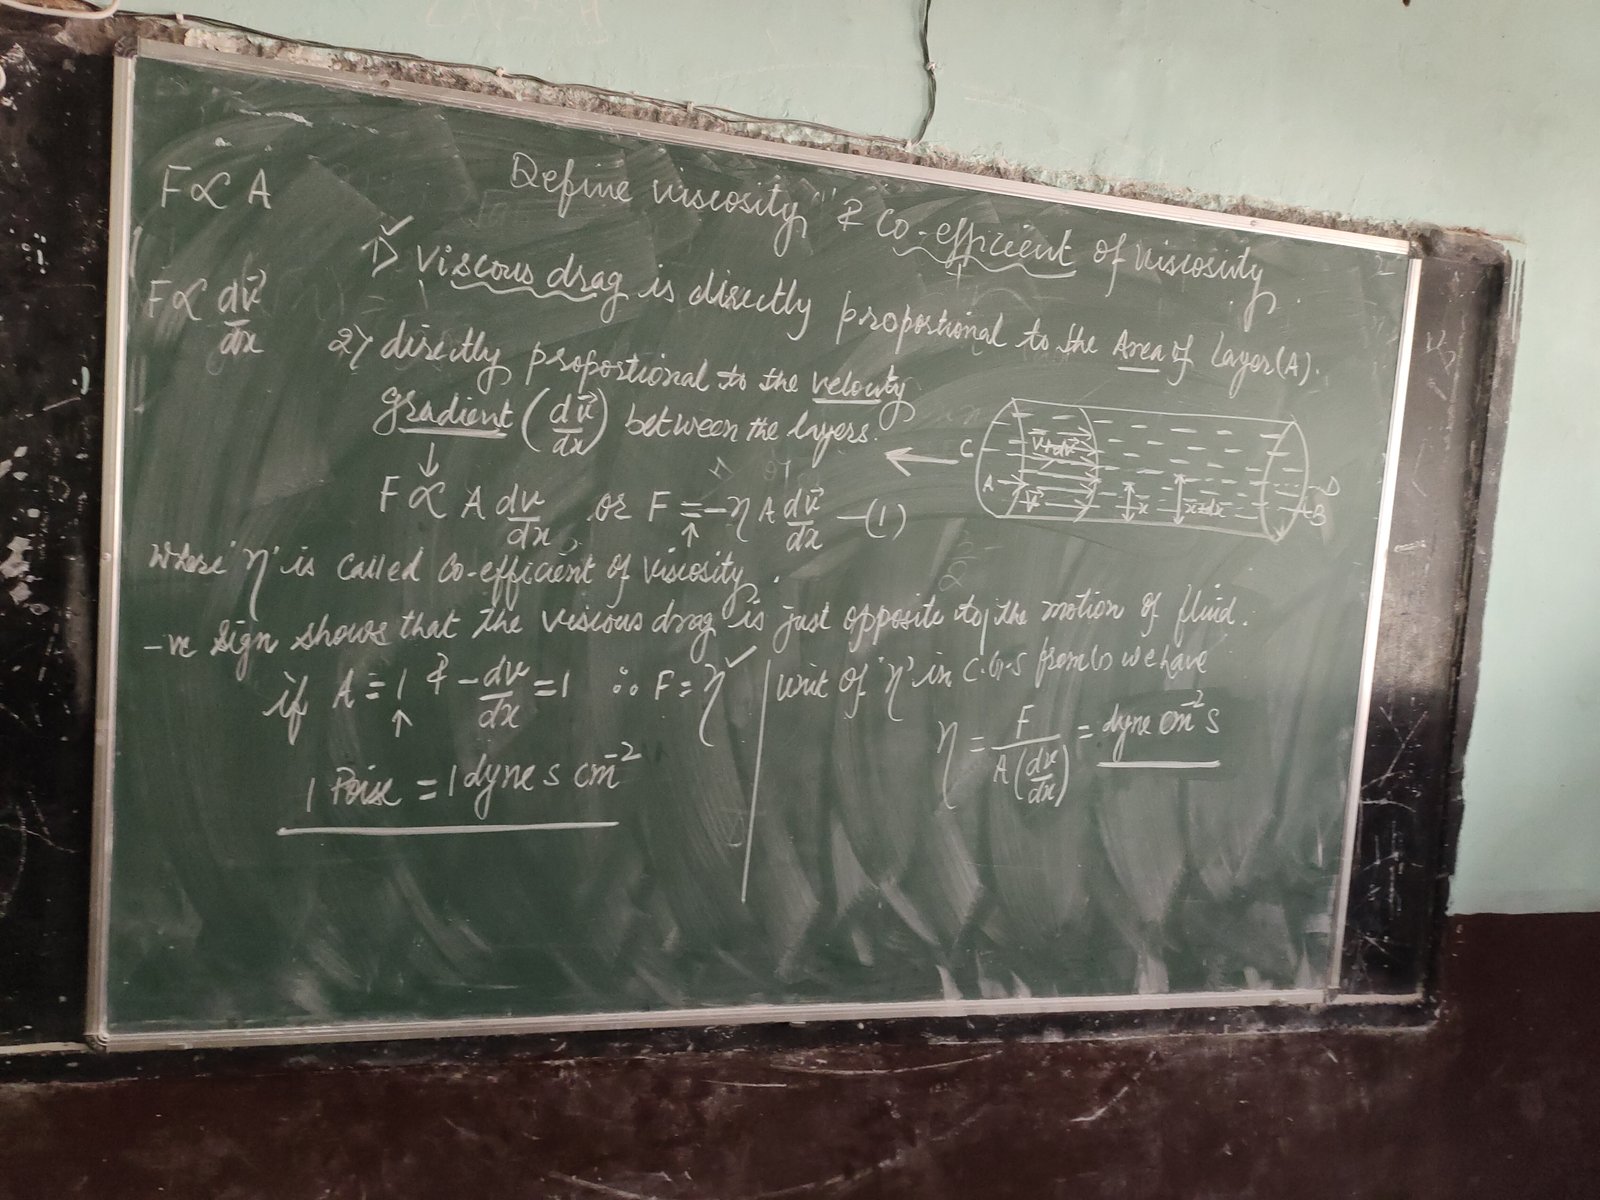 Define viscosity & Co-efficient of viscosity
F ∝ A
1) Viscous drag is directly proportional to the Area of Layer (A).
F ∝ dv⃗/dx
2) directly proportional to the velocity
gradient (dv⃗/dx) between the layers.
↓
F ∝ A dv/dx or F = -η A dv⃗/dx —(1)
C
v⃗+dv⃗
A
v⃗
x
x+dx
D
B
where 'η' is called Co-efficient of viscosity.
-ve sign shows that the viscous drag is just opposite to the motion of fluid.
if A = 1 & -dv/dx = 1 ∴ F = η
1 Poise = 1 dyne s cm⁻²
Unit of 'η' in C.G.S from we have
η = F/A(dv/dx) = dyne cm⁻² s